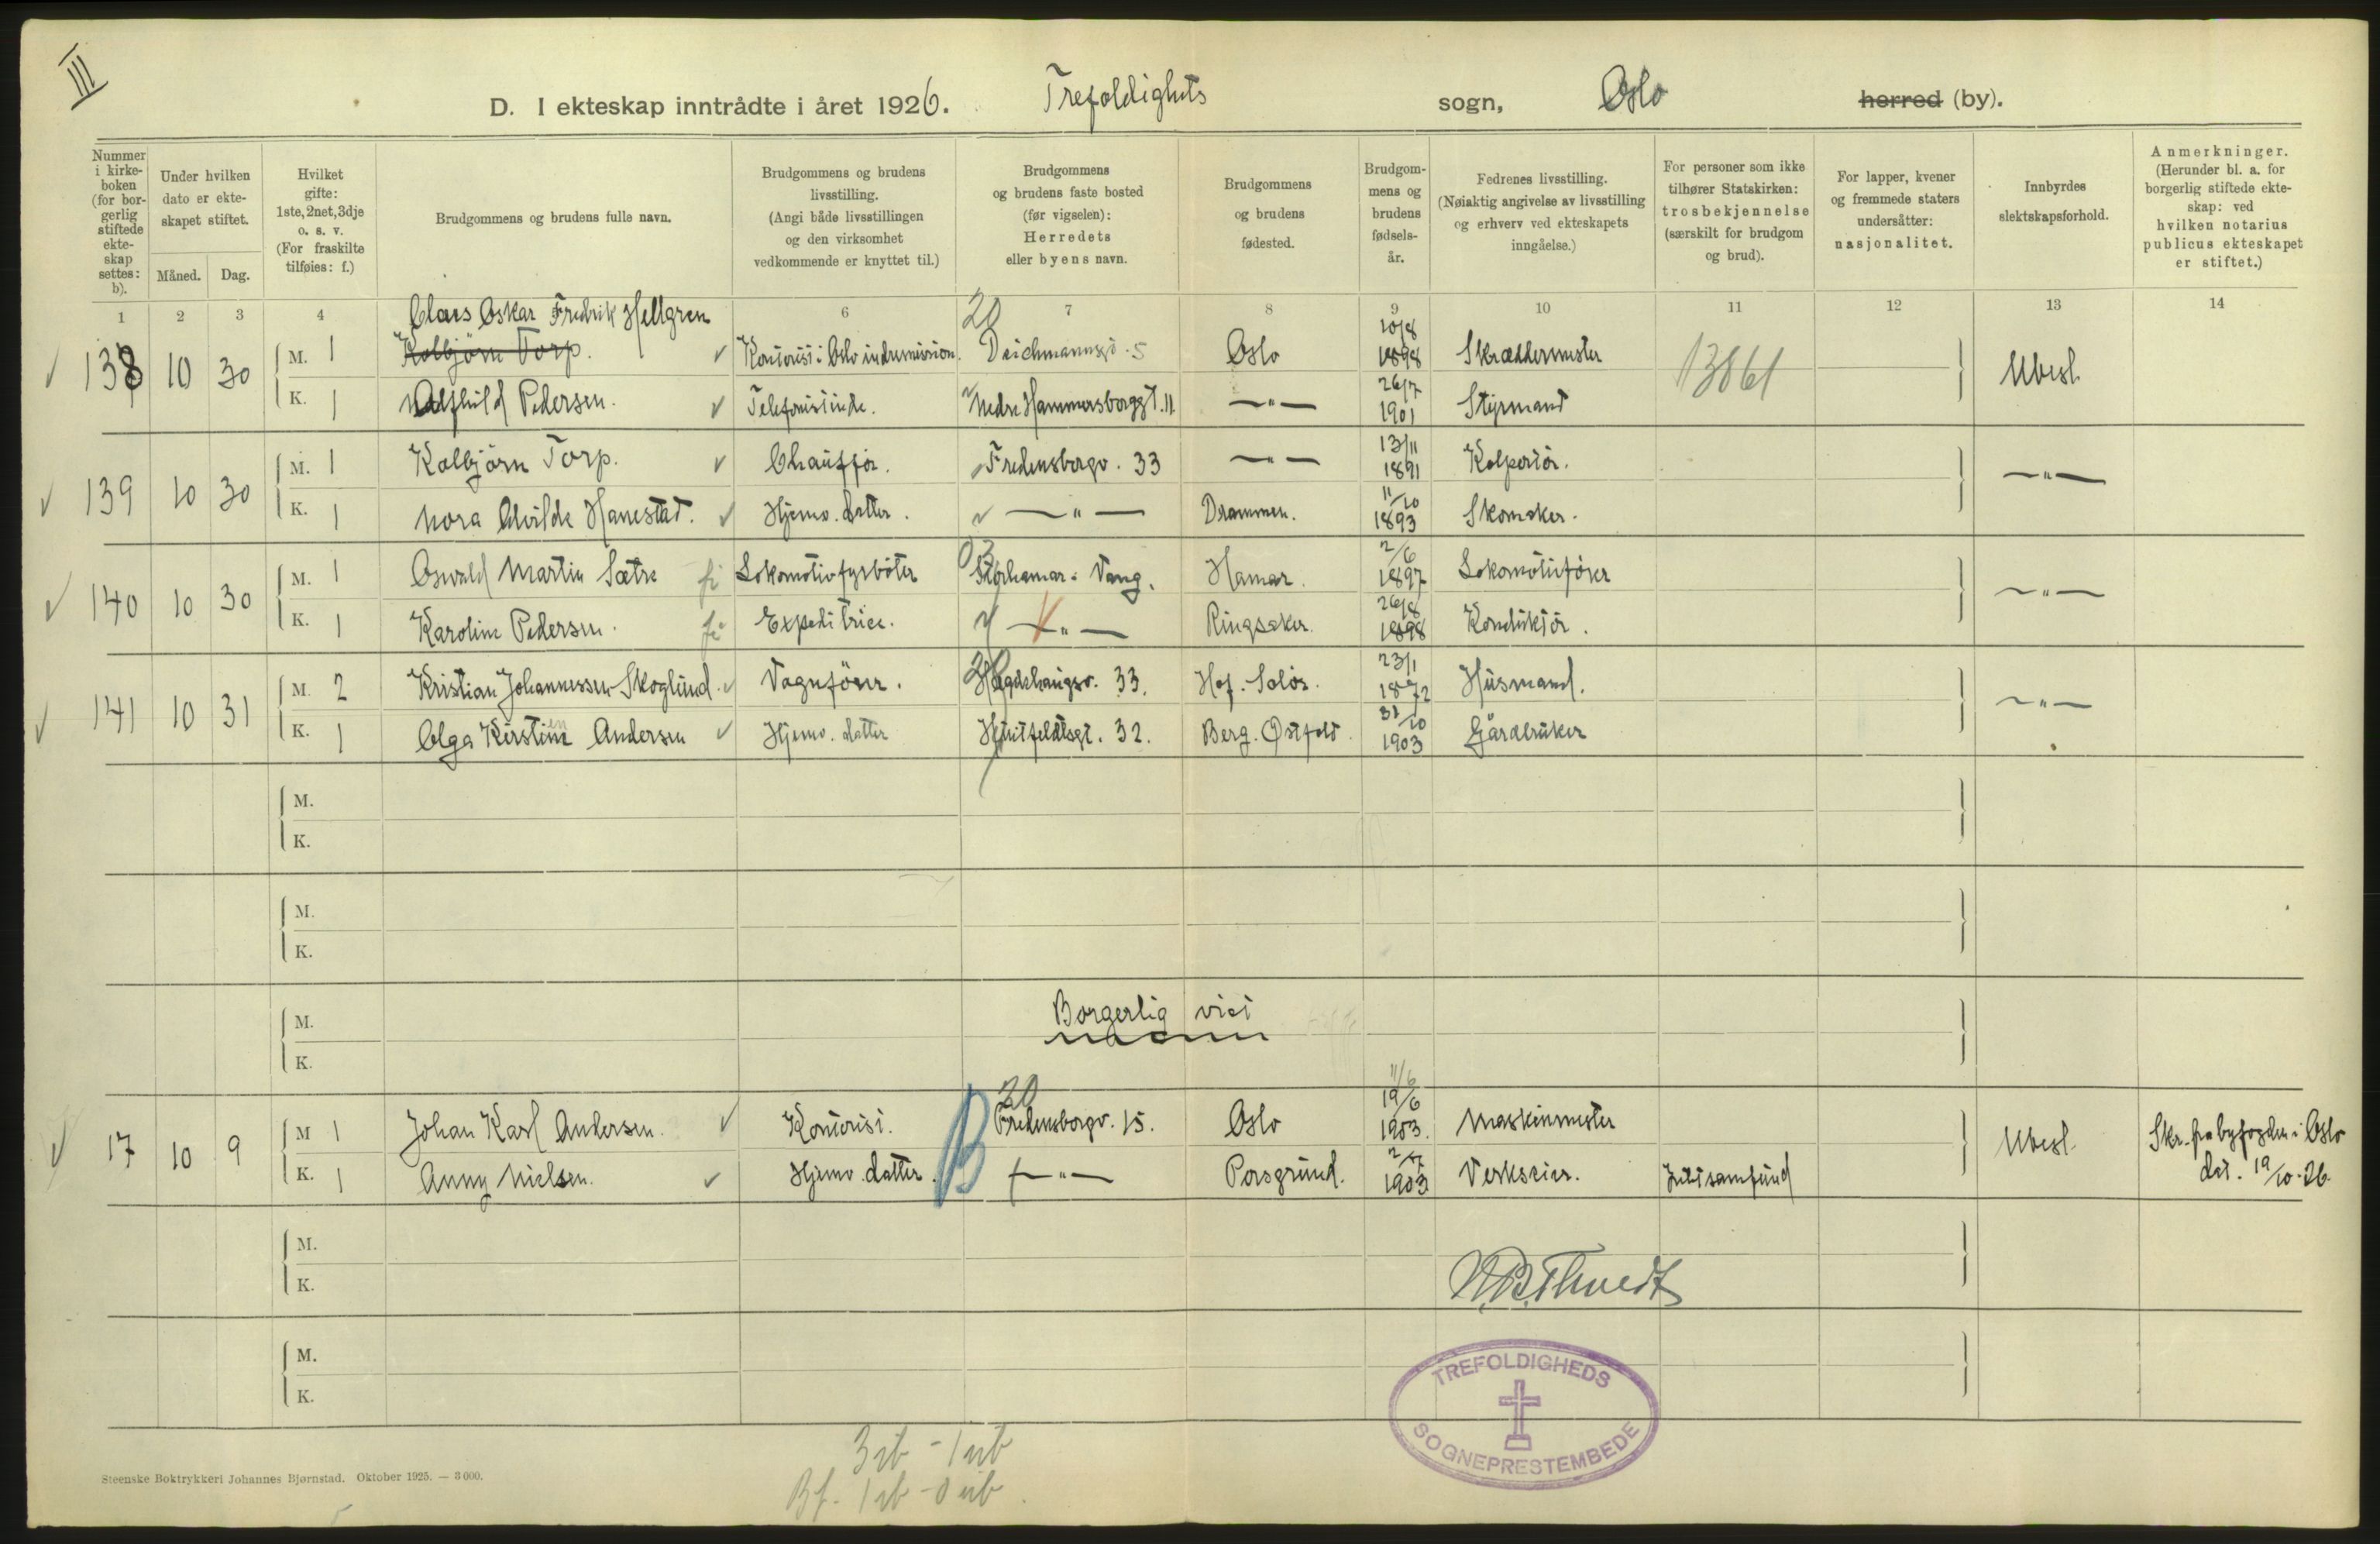 III
D. I ekteskap inntrådte i året 1926. Trefoldighets sogn, Oslo herred (by).
Nummer i kirke-boken (for bor-gerlig stiftede ekte-skap settes: b).
Under hvilken dato er ekte-skapet stiftet.
Måned. Dag.
Hvilket gifte: 1ste, 2net, 3dje o. s. v. (For fraskilte tilføies: f.)
Brudgommens og brudens fulle navn.
Brudgommens og brudens livsstilling. (Angi både livsstillingen og den virksomhet vedkommende er knyttet til.)
Brudgommens og brudens faste bosted (før vigselen): Herredets eller byens navn.
Brudgommens og brudens fødested.
Brudgom-mens og brudens fødsels-år.
Fedrenes livsstilling. (Nøiaktig angivelse av livsstilling og erhverv ved ekteskapets inngåelse.)
For personer som ikke tilhører Statskirken: trosbekjennelse (særskilt for brudgom og brud).
For lapper, kvener og fremmede staters undersåtter: nasjonalitet.
Innbyrdes slektskapsforhold.
Anmerkninger. (Herunder bl. a. for borgerlig stiftede ekte-skap: ved hvilken notarius publicus ekteskapet er stiftet.)
1 2 3 4 6 7 8 9 10 11 12 13 14
Claes Oskar Fredrik Hellgren 20 10/8
138 10 30 M. 1 Kolbjörn Torp. Kontorist i Oslo indremission. Deichmannsgt. 5 Oslo 1898 Skræddermester 13861 Ubesl.
K. 1 Alfhild Pedersen. Telefonistinde. Nedre Hammersborggt. 11 —"— 26/7 1901 Styrmand
139 10 30 M. 1 Kolbjörn Torp. Chauffør. Fredensborgv. 33 —"— 13/11 1891 Kolportør. —"—
K. 1 Nora Alvilde Hanestad. Hjemv. datter. —"— Drammen. 11/10 1893 Skomaker.
140 10 30 M. 1 Oswald Martin Sætre Lokomotivfyrböter 03 Storhamar i Vang. Hamar. 2/6 1897 Lokomotivfører —"—
K. 1 Karoline Pedersen. Expeditrice. —"— Ringsaker. 26/8 1898 Konduktør.
141 10 31 M. 2 Kristian Johannessen Skoglund. Vognförer. Hegdehaugsv. 33. Hof. Solør. 23/1 1872 Husmand. —"—
K. 1 Olga Kirstine Andersen Hjemv. datter Huitfeldtsgt. 32. Berg. Østfold. 31/10 1903 Gårdbruker
M.
K.
M.
K.
M. Borgerlig viet
K.
11/6
17 10 9 M 1 Johan Karl Andersen. Kontorist. B 20 Fredensborgv. 15. Oslo 19/6 1903. Maskinmester Ubesl. Skr. fra byfogden i Oslo
K. 1 Anny Nielsen. Hjemv. datter. —"— Porsgrund. 1903 Verkseier. dat. 19/10-26.
M.
K.
M.
K.
TREFOLDIGHEDS
SOGNEPRESTEMBEDE
3 ib - 1 uib
Bf. 1 ib - 0 uib.
Steenske Boktrykkeri Johannes Bjørnstad. Oktober 1925. — 3 000.